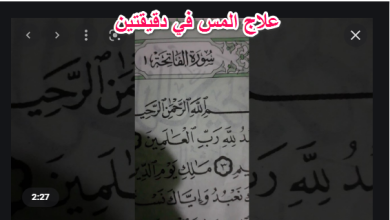 علاج المس في دقيقتين
سورة الفاتحة ١
بسم ٱلله ٱلرحمن ٱلرحيم
لله رب ٱلعالمين
ملك يوم ٱلدين
نعبد وإياك
2:27